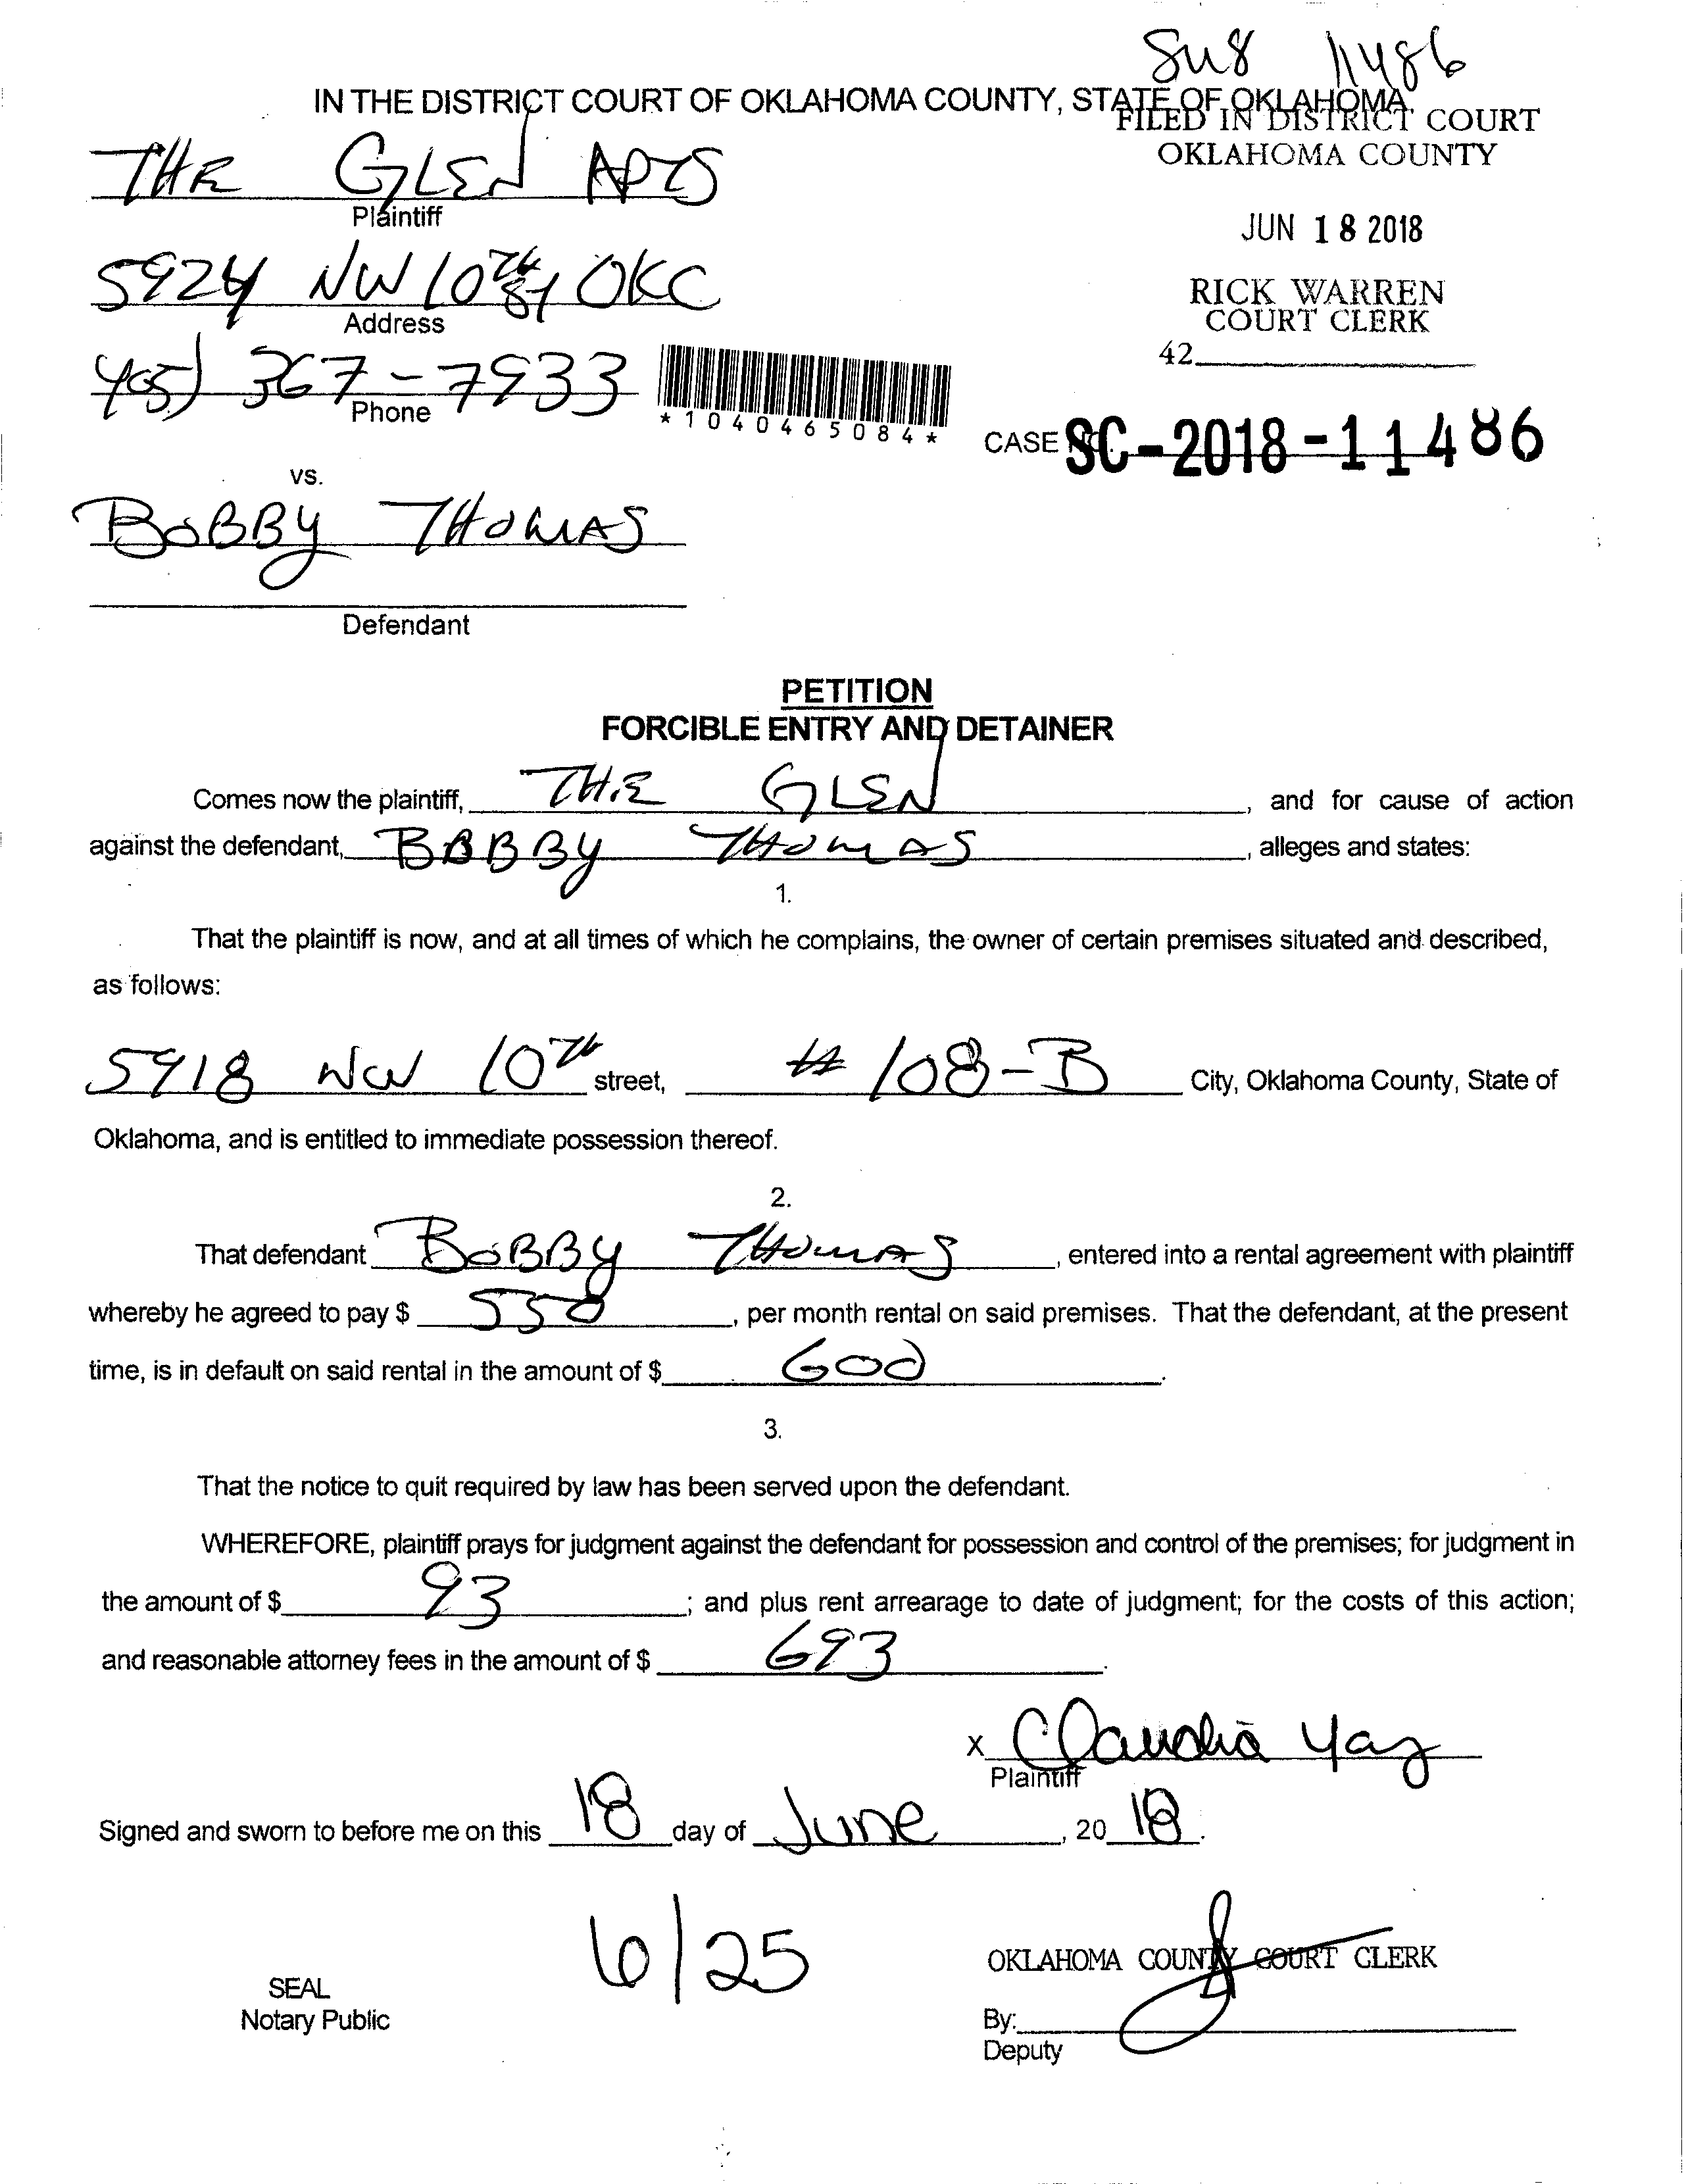 SUS 11486
IN THE DISTRICT COURT OF OKLAHOMA COUNTY, STATE OF OKLAHOMA.
FILED IN DISTRICT COURT
OKLAHOMA COUNTY
THE GLEN APTS
Plaintiff
JUN 18 2018
5924 NW 10th St OKC
Address
RICK WARREN
COURT CLERK
42
405) 367-7933
Phone
*1040465084*
CASE NO. SC-2018-11486
vs.
BOBBY THOMAS
Defendant
PETITION
FORCIBLE ENTRY AND DETAINER
Comes now the plaintiff, THE GLEN, and for cause of action
against the defendant, BOBBY THOMAS, alleges and states:
1.
That the plaintiff is now, and at all times of which he complains, the owner of certain premises situated and described,
as follows:
5918 NW 10th street, # 108-B City, Oklahoma County, State of
Oklahoma, and is entitled to immediate possession thereof.
2.
That defendant BOBBY THOMAS, entered into a rental agreement with plaintiff
whereby he agreed to pay $ 550, per month rental on said premises. That the defendant, at the present
time, is in default on said rental in the amount of $ 600.
3.
That the notice to quit required by law has been served upon the defendant.
WHEREFORE, plaintiff prays for judgment against the defendant for possession and control of the premises; for judgment in
the amount of $ 93; and plus rent arrearage to date of judgment; for the costs of this action;
and reasonable attorney fees in the amount of $ 693.
x Claudia Yaz
Plaintiff
Signed and sworn to before me on this 18 day of June, 20 18.
6/25
OKLAHOMA COUNTY COURT CLERK
SEAL
Notary Public
By:
Deputy